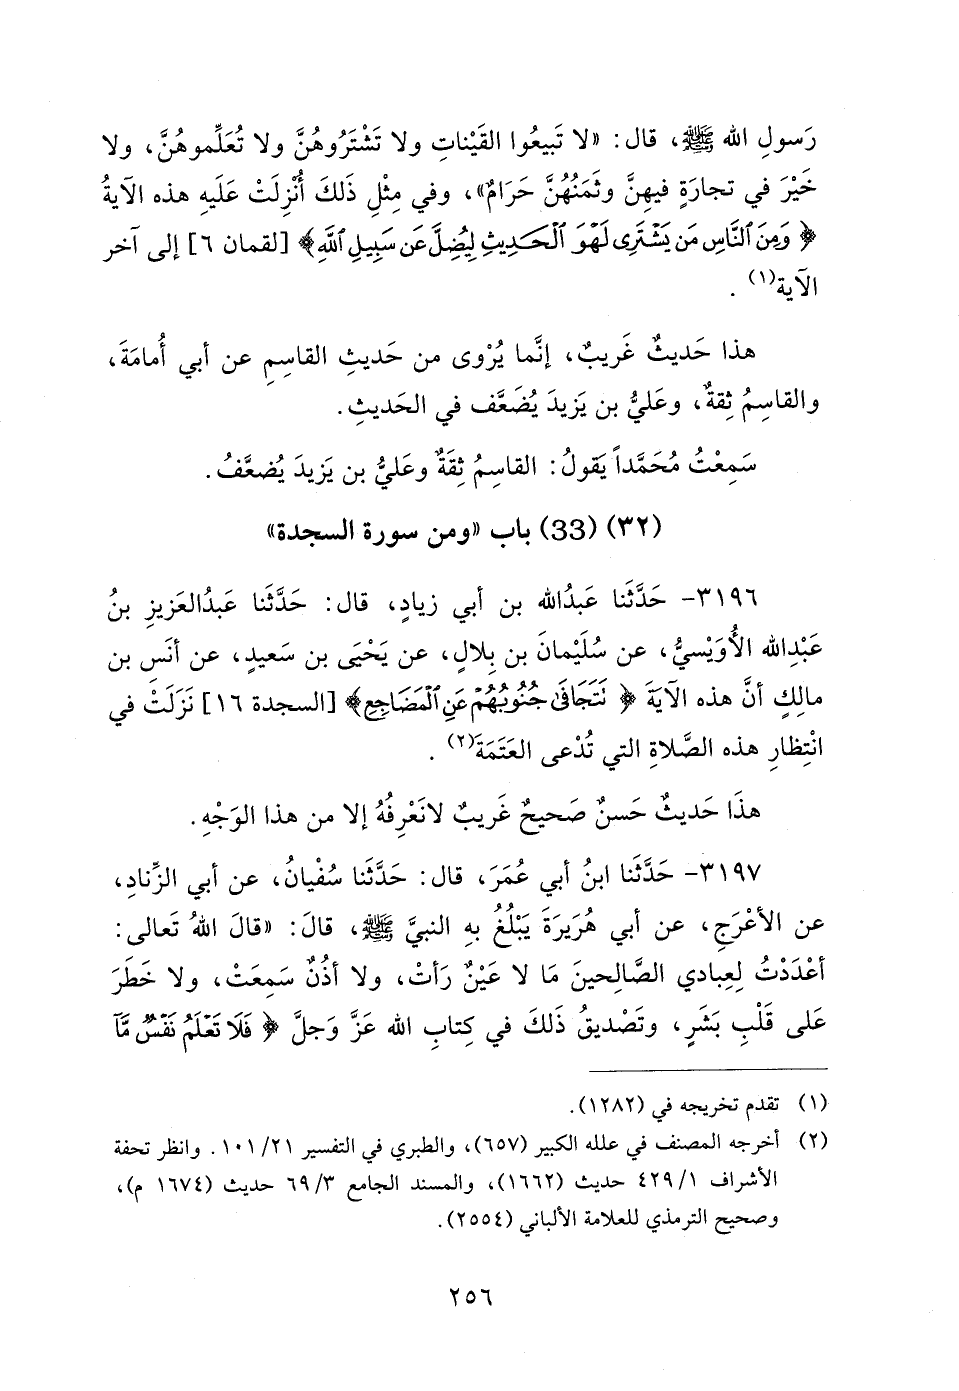 رَسولِ الله ﷺ، قال: «لا تَبيعُوا القَيْناتِ ولا تَشْتَرُوهُنَّ ولا تُعَلِّموهُنَّ، ولا
خَيْرَ في تجارَةٍ فيهِنَّ وثَمَنُهُنَّ حَرَامٌ»، وفي مِثْلِ ذَلكَ أُنْزِلَتْ عَلَيهِ هذه الآيةُ
﴿ وَمِنَ ٱلنَّاسِ مَن يَشْتَرِى لَهْوَ ٱلْحَدِيثِ لِيُضِلَّ عَن سَبِيلِ ٱللَّهِ﴾ [لقمان ٦] إلى آخر
الآية(١) .
هذا حَديثٌ غَريبٌ، إنَّما يُرْوى من حَديثِ القاسِمِ عن أبي أُمامَةَ،
والقاسِمُ ثِقةٌ، وعَليُّ بن يَزيدَ يُضَعَّف في الحَديثِ.
سَمِعْتُ مُحَمَّداً يَقولُ: القاسِمُ ثِقَةٌ وعَليُّ بن يَزيدَ يُضعَّفُ.
(٣٢) (33) باب «ومن سورة السجدة»
٣١٩٦- حَدَّثَنا عَبدُالله بن أبي زيادٍ، قال: حَدَّثَنا عَبدُالعَزيزِ بنُ
عَبْدِالله الأُوَيْسيُّ، عن سُلَيْمانَ بن بِلالٍ، عن يَحْيَى بن سَعيدٍ، عن أنَسِ بن
مالِكٍ أنَّ هذه الآيَةَ ﴿ نَتَجَافَىٰ جُنُوبُهُمْ عَنِ ٱلْمَضَاجِعِ﴾ [السجدة ١٦] نَزَلَتْ في
انْتِظارِ هذه الصَّلاةِ التي تُدْعى العَتَمَةَ(٢) .
هذَا حَديثٌ حَسنٌ صَحيحٌ غَريبٌ لانَعْرِفُهُ إلا من هذا الوَجْهِ.
٣١٩٧- حَدَّثَنا ابنُ أبي عُمَرَ، قال: حَدَّثَنا سُفْيانُ، عن أبي الزِّنادِ،
عن الأعْرَجِ، عن أبي هُرَيرَةَ يَبْلُغُ به النبيَّ ﷺ، قالَ: «قالَ اللهُ تَعالى:
أعْدَدْتُ لِعِبادي الصَّالِحينَ مَا لا عَيْنٌ رَأتْ، ولا أذُنٌ سَمِعَتْ، ولا خَطَرَ
عَلى قَلْبِ بَشَرٍ، وتَصْديقُ ذَلكَ في كِتابِ الله عَزَّ وَجلَّ ﴿ فَلَا تَعْلَمُ نَفْسٌ مَّآ
(١) تقدم تخريجه في (١٢٨٢).
(٢) أخرجه المصنف في علله الكبير (٦٥٧)، والطبري في التفسير ٢١/ ١٠١ . وانظر تحفة
الأشراف ١/ ٤٢٩ حديث (١٦٦٢)، والمسند الجامع ٣/ ٦٩ حديث (١٦٧٤ م)،
وصحيح الترمذي للعلامة الألباني (٢٥٥٤).
٢٥٦